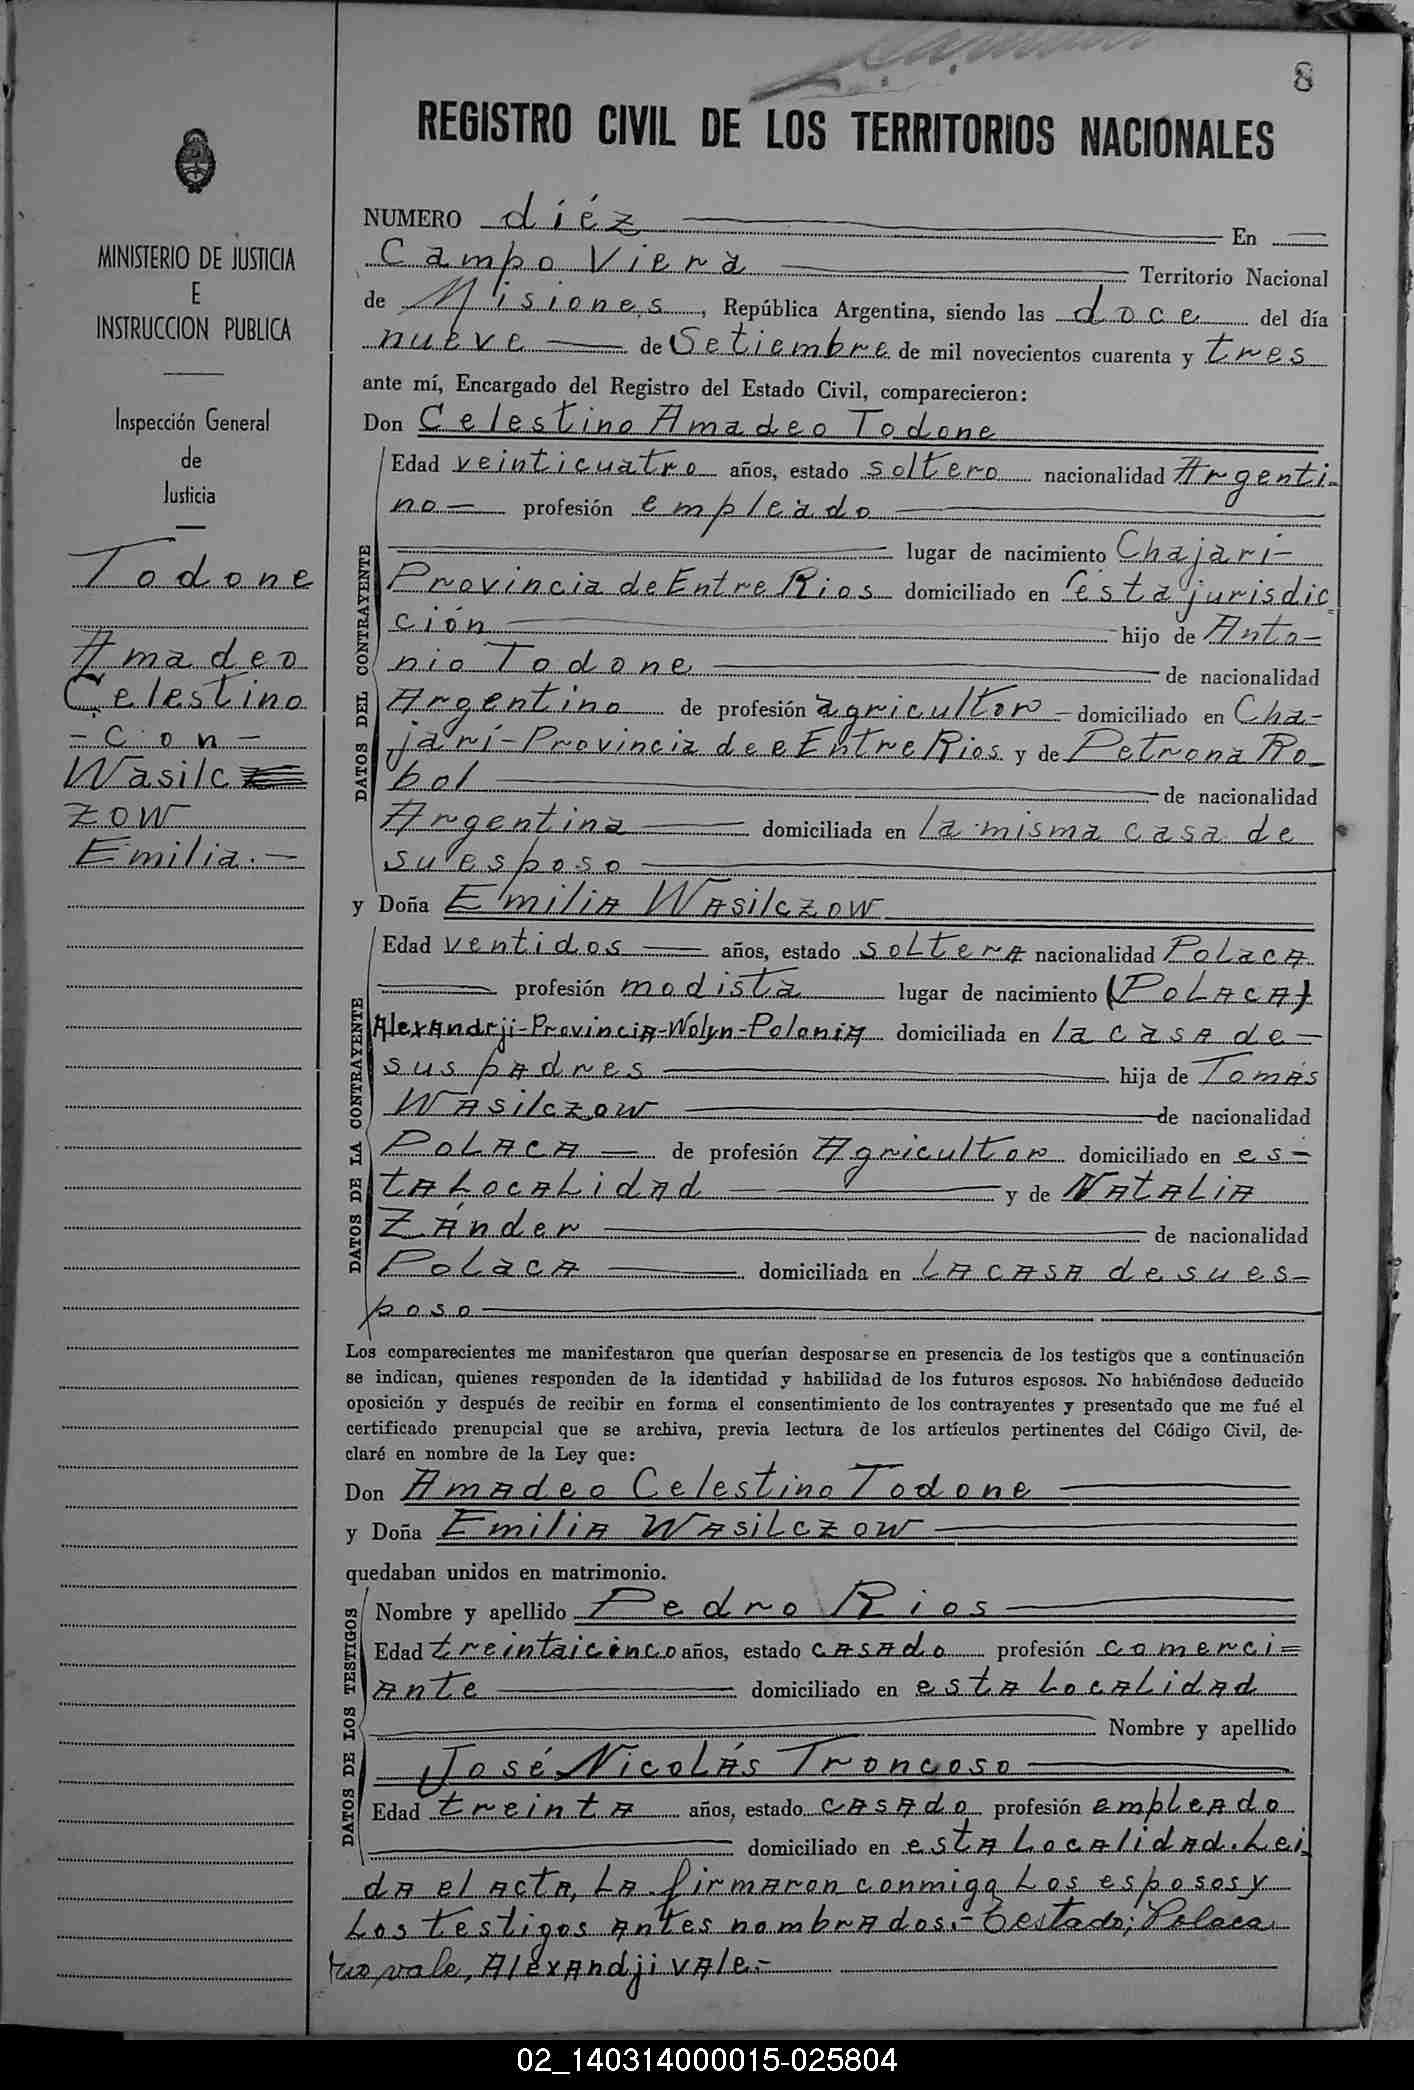 8
REGISTRO CIVIL DE LOS TERRITORIOS NACIONALES
MINISTERIO DE JUSTICIA
E
INSTRUCCION PUBLICA
Inspección General
de
Justicia
Todone
Amadeo
Celestino
- con -
Wasilc
zow
Emilia.-
NUMERO diéz En
Campo Viera Territorio Nacional
de Misiones, República Argentina, siendo las doce del día
nueve de Setiembre de mil novecientos cuarenta y tres
ante mí, Encargado del Registro del Estado Civil, comparecieron:
Don Celestino Amadeo Todone
DATOS DEL CONTRAYENTE
Edad veinticuatro años, estado soltero nacionalidad Argenti-
no- profesión empleado
lugar de nacimiento Chajarí-
Provincia de Entre Rios domiciliado en ésta jurisdic
ción hijo de Anto-
nio Todone de nacionalidad
Argentino de profesión agricultor - domiciliado en Cha-
jarí-Provincia de e Entre Rios y de Petrona Ro-
bol de nacionalidad
Argentina domiciliada en la misma casa de
su esposo
y Doña Emilia Wasilczow
DATOS DE LA CONTRAYENTE
Edad ventidos años, estado soltera nacionalidad Polaca
profesión modista lugar de nacimiento (Polaca)
Alexandrji-Provincia-Wolyn-Polonia domiciliada en la casa de-
sus padres hija de Tomás
Wasilczow de nacionalidad
Polaca de profesión Agricultor domiciliado en es=
ta Localidad y de Natalia
Zánder de nacionalidad
Polaca domiciliada en la casa de su es-
poso
Los comparecientes me manifestaron que querían desposarse en presencia de los testigos que a continuación
se indican, quienes responden de la identidad y habilidad de los futuros esposos. No habiéndose deducido
oposición y después de recibir en forma el consentimiento de los contrayentes y presentado que me fué el
certificado prenupcial que se archiva, previa lectura de los artículos pertinentes del Código Civil, de-
claré en nombre de la Ley que:
Don Amadeo Celestino Todone
y Doña Emilia Wasilczow
quedaban unidos en matrimonio.
DATOS DE LOS TESTIGOS
Nombre y apellido Pedro Rios
Edad treintaicinco años, estado casado profesión comerci=
ante domiciliado en esta Localidad
Nombre y apellido
José Nicolás Troncoso
Edad treinta años, estado casado profesión empleado
domiciliado en esta Localidad. Lei
da el acta, la firmaron conmigo los esposos y
los testigos antes nombrados.- Testado; Polaca
no vale, Alexandji vale.-
02_140314000015-025804